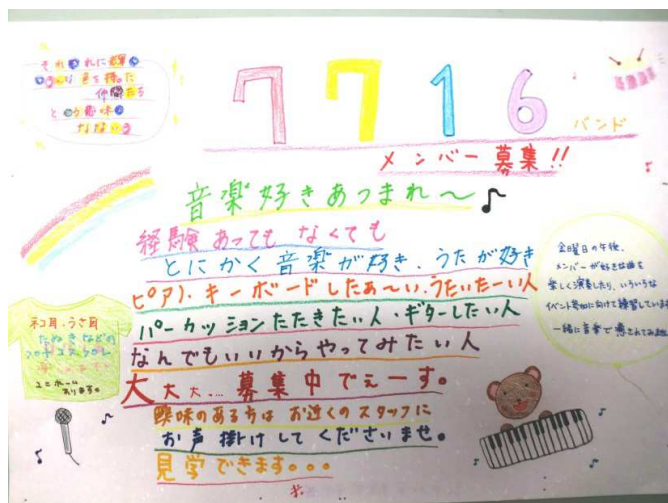 それぞれに輝く
いろんな色を持った
仲間たち
という意味の
なないろ
7716
バンド
メンバー募集!!
音楽好きあつまれ〜
経験あってもなくても
とにかく音楽が好き、うたが好き
ピアノ、キーボードしたぁ〜い、うたいたーい人
パーカッションたたきたい人・ギターしたい人
なんでもいいからやってみたい人
大大大...募集中でぇーす。
興味のある方はお近くのスタッフに
お声掛けしてくださいませ。
見学できます。。。
ネコ耳、うさ耳
たぬきなどの
プチコスプレ
ユニホーム
あります。
金曜日の午後、
メンバーが好きな曲を
楽しく演奏したり、いろいろな
イベント参加に向けて練習しています
一緒に音楽で癒されてみませ